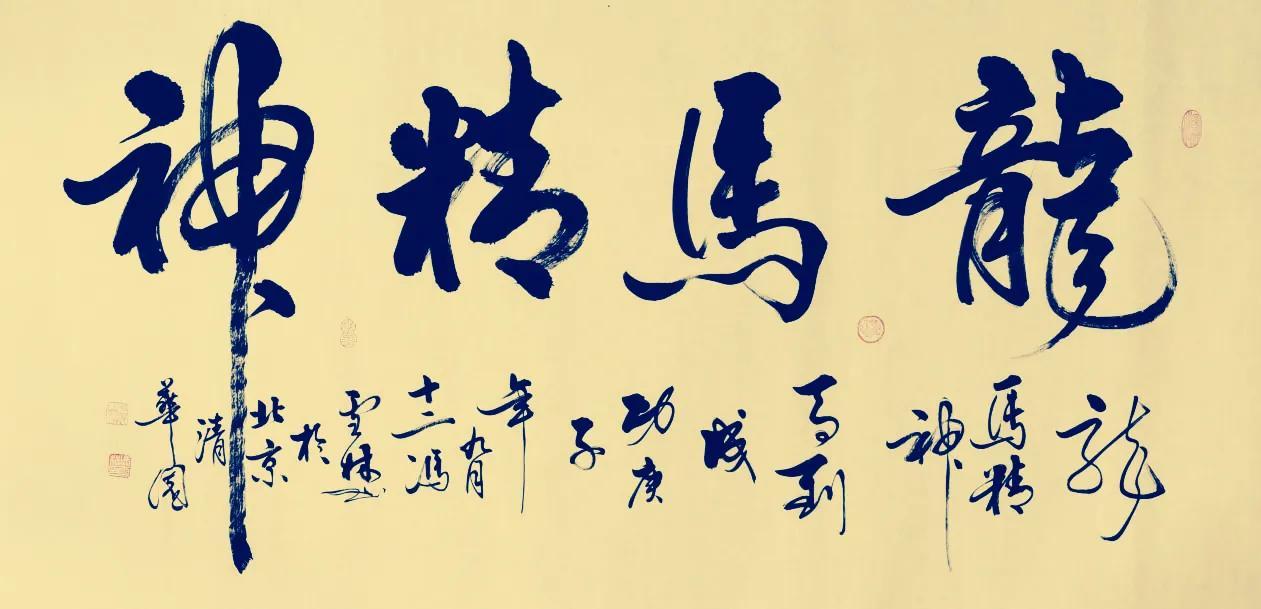 龍馬精神
龍
馬精
神
马到
成
功庚
子
年
九月
十二馮
雪林
於
北京
清
華園